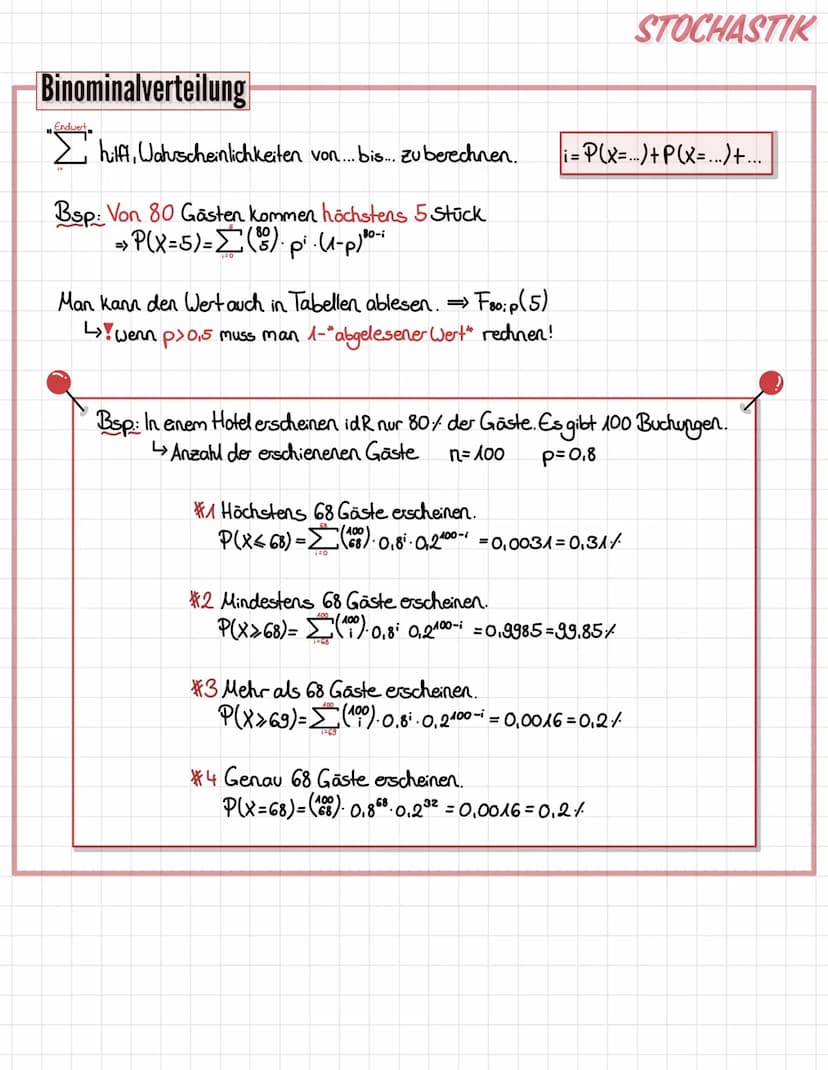 STOCHASTIK
Binominalverteilung
"Endwert"
∑ hilft, Wahrscheinlichkeiten von... bis... zu berechnen.
i=
i = P(X=...)+P(X=...)+...
Bsp.: Von 80 Gästen kommen höchstens 5 Stück
⇒ P(X=5)=∑(80 5)· pⁱ ·(1-p)⁸⁰⁻ⁱ
i=0
Man kann den Wert auch in Tabellen ablesen. ⇒ F80;p(5)
↳ ! wenn p>0,5 muss man 1-"abgelesener Wert" rechnen!
Bsp.: In enem Hotel erscheinen idR nur 80% der Gäste. Es gibt 100 Buchungen.
↳ Anzahl der erschienenen Gäste n=100 p=0,8
*1 Höchstens 68 Gäste erscheinen.
68
P(X⩽68)=∑(100 68)·0,8ⁱ·0,2¹⁰⁰⁻ⁱ =0,0031=0,31%
i=0
*2 Mindestens 68 Gäste erscheinen.
100
P(X⩾68)= ∑(100 i)·0,8ⁱ 0,2¹⁰⁰⁻ⁱ =0,9985=99,85%
i=68
*3 Mehr als 68 Gäste erscheinen.
100
P(X⩾69)=∑(100 i)·0,8ⁱ·0,2¹⁰⁰⁻ⁱ = 0,0016=0,2%
i=69
*4 Genau 68 Gäste erscheinen.
P(X=68)=(100 68)· 0,8⁶⁸·0,2³² =0,0016=0,2%